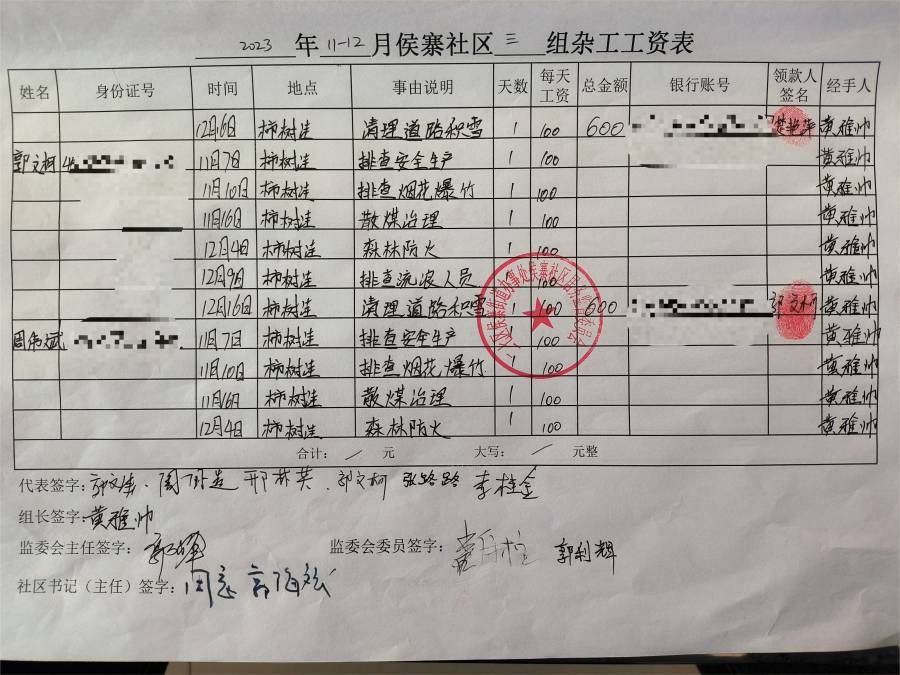 2023 年 11-12 月侯寨社区 三 组杂工工资表
姓名 身份证号 时间 地点 事由说明 天数 每天工资 总金额 银行账号 领款人签名 经手人
12月16日 柿树洼 清理道路积雪 1 100 600 黄雅帅
郭文柯 11月7日 柿树洼 排查安全生产 1 100 黄雅帅
11月10日 柿树洼 排查烟花爆竹 1 100 黄雅帅
11月16日 柿树洼 散煤治理 1 100 黄雅帅
12月4日 柿树洼 森林防火 1 100 黄雅帅
12月9日 柿树洼 排查流浪人员 1 黄雅帅
12月16日 柿树洼 清理道路积雪 1 100 600 郭文柯 黄雅帅
周伟斌 11月7日 柿树洼 排查安全生产 1 100 黄雅帅
11月10日 柿树洼 排查烟花爆竹 1 100 黄雅帅
11月16日 柿树洼 散煤治理 1 100 黄雅帅
12月4日 柿树洼 森林防火 1 100 黄雅帅
合计： / 元 大写： / 元整
代表签字： 郭文柯 张路路 李桂金
组长签字：黄雅帅
监委会主任签字： 监委会委员签字： 郭利辉
社区书记（主任）签字：